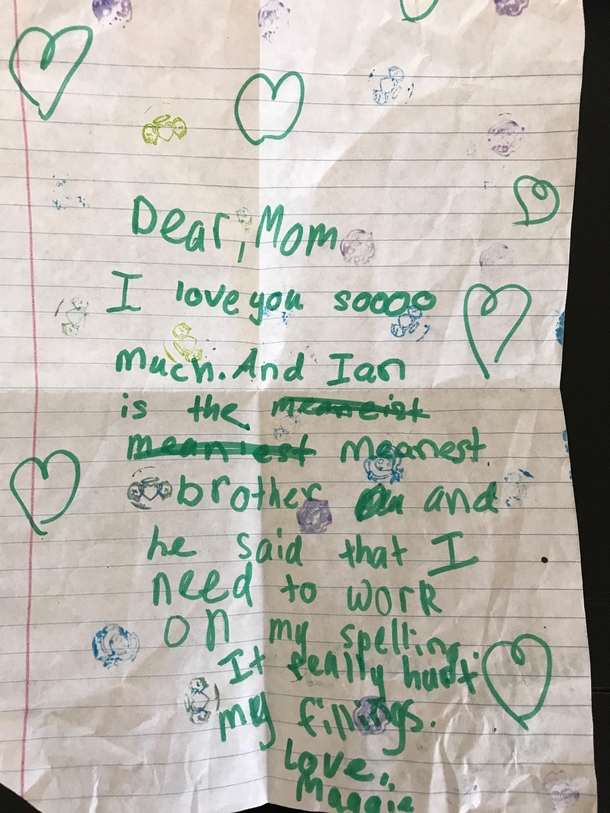 Dear, Mom
I love you soooo
much. And Ian
is the meaneist
meaniest meanest
brother and
he said that I
need to work
on my spelling.
It really hurt
my filings.
Love,
Maggie